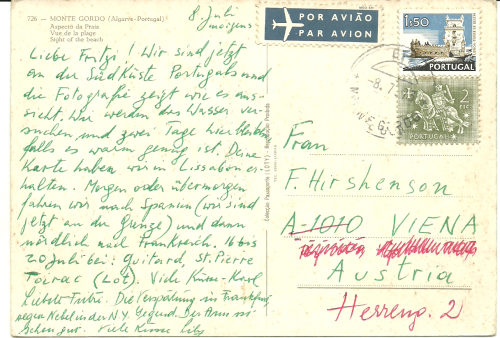 726 - MONTE GORDO (Algarve-Portugal)
Aspecto da Praia
Vue de la plage
Sight of the beach
8 Juli
morgens
Liebe Fritzi! Wir sind jetzt
an der Südküste Portugals und
die Fotografie zeigt wie es aus-
sieht. Wir werden das Wasser ver-
suchen und zwei Tage hier bleiben
falls es warm genug ist. Deine
Karte haben wir in Lissabon er-
halten. Morgen oder übermorgen
fahren wir nach Spanien (wir sind
jetzt an der Grenze) und dann
nördlich nach Frankreich. 16 bis
20 Juli bei: Guitard, St. Pierre
Toirac (Lot). Viele Küsse - Karl
Liebste Fritzi. Die Verspätung in Frankfurt
wegen Nebel in der N.Y. Gegend. Der Arm
gut. Viele Küsse
POR AVIÃO
PAR AVION
1$50
PORTUGAL
2
PORTUGAL
Frau
F. Hirshenson
A-1010 VIENA
Austria
Herreng. 2